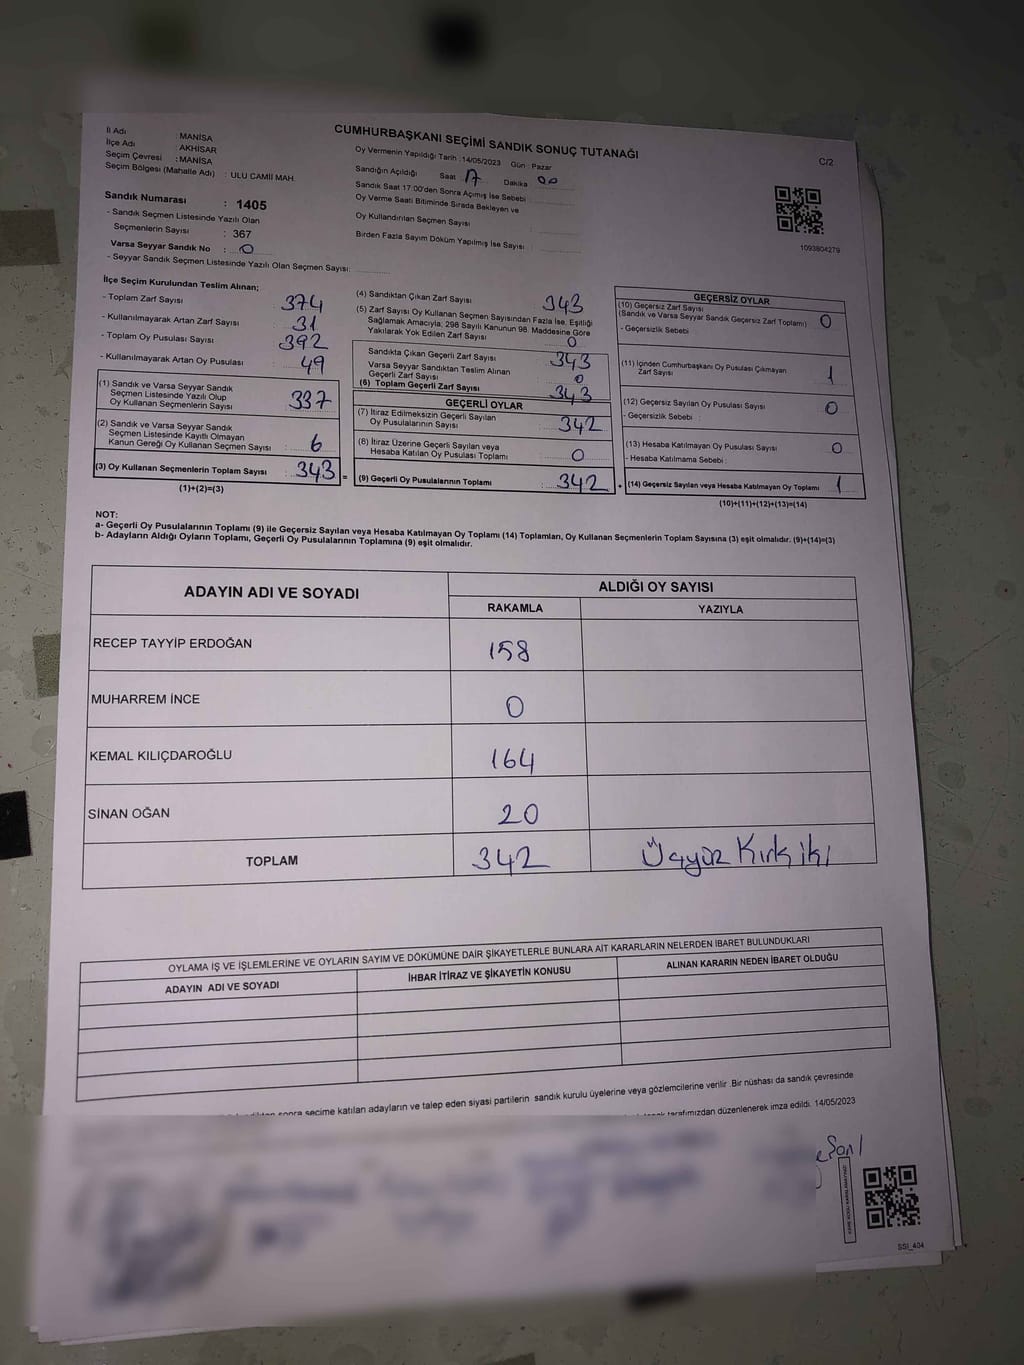 CUMHURBAŞKANI SEÇİMİ SANDIK SONUÇ TUTANAĞI
C/2
İl Adı : MANİSA
İlçe Adı : AKHİSAR
Seçim Çevresi : MANİSA
Seçim Bölgesi (Mahalle Adı) : ULU CAMİİ MAH.
Sandık Numarası : 1405
- Sandık Seçmen Listesinde Yazılı Olan
Seçmenlerin Sayısı : 367
Varsa Seyyar Sandık No : 0
- Seyyar Sandık Seçmen Listesinde Yazılı Olan Seçmen Sayısı:
Oy Vermenin Yapıldığı Tarih : 14/05/2023 Gün : Pazar
Sandığın Açıldığı Saat 17 Dakika 00
Sandık Saat 17:00'den Sonra Açımış İse Sebebi
Oy Verme Saati Bitiminde Sırada Bekleyen ve
Oy Kullandırılan Seçmen Sayısı
Birden Fazla Sayım Döküm Yapılmış İse Sayısı
1093804279
İlçe Seçim Kurulundan Teslim Alınan;
- Toplam Zarf Sayısı 374
- Kullanılmayarak Artan Zarf Sayısı 31
- Toplam Oy Pusulası Sayısı 392
- Kullanılmayarak Artan Oy Pusulası 49
(1) Sandık ve Varsa Seyyar Sandık
Seçmen Listesinde Yazılı Olup
Oy Kullanan Seçmenlerin Sayısı 337
(2) Sandık ve Varsa Seyyar Sandık
Seçmen Listesinde Kayıtlı Olmayan
Kanun Gereği Oy Kullanan Seçmen Sayısı : 6
(3) Oy Kullanan Seçmenlerin Toplam Sayısı 343 =
(1)+(2)=(3)
(4) Sandıktan Çıkan Zarf Sayısı 343
(5) Zarf Sayısı Oy Kullanan Seçmen Sayısından Fazla İse, Eşitliği
Sağlamak Amacıyla; 298 Sayılı Kanunun 98. Maddesine Göre
Yakılarak Yok Edilen Zarf Sayısı 0
Sandıkta Çıkan Geçerli Zarf Sayısı 343
Varsa Seyyar Sandıktan Teslim Alınan
Geçerli Zarf Sayısı 0
(6) Toplam Geçerli Zarf Sayısı 343
GEÇERLİ OYLAR
(7) İtiraz Edilmeksizin Geçerli Sayılan
Oy Pusulalarının Sayısı 342
(8) İtiraz Üzerine Geçerli Sayılan veya
Hesaba Katılan Oy Pusulası Toplamı 0
(9) Geçerli Oy Pusulalarının Toplamı : 342 +
GEÇERSİZ OYLAR
(10) Geçersiz Zarf Sayısı
(Sandık ve Varsa Seyyar Sandık Geçersiz Zarf Toplamı) 0
- Geçersizlik Sebebi
(11) İçinden Cumhurbaşkanı Oy Pusulası Çıkmayan
Zarf Sayısı 1
(12) Geçersiz Sayılan Oy Pusulası Sayısı 0
- Geçersizlik Sebebi :
(13) Hesaba Katılmayan Oy Pusulası Sayısı 0
- Hesaba Katılmama Sebebi :
(14) Geçersiz Sayılan veya Hesaba Katılmayan Oy Toplamı 1
(10)+(11)+(12)+(13)=(14)
NOT:
a- Geçerli Oy Pusulalarının Toplamı (9) ile Geçersiz Sayılan veya Hesaba Katılmayan Oy Toplamı (14) Toplamları, Oy Kullanan Seçmenlerin Toplam Sayısına (3) eşit olmalıdır. (9)+(14)=(3)
b- Adayların Aldığı Oyların Toplamı, Geçerli Oy Pusulalarının Toplamına (9) eşit olmalıdır.
ADAYIN ADI VE SOYADI
ALDIĞI OY SAYISI
RAKAMLA YAZIYLA
RECEP TAYYİP ERDOĞAN 158
MUHARREM İNCE 0
KEMAL KILIÇDAROĞLU 164
SİNAN OĞAN 20
TOPLAM 342 Üçyüz Kırk iki
OYLAMA İŞ VE İŞLEMLERİNE VE OYLARIN SAYIM VE DÖKÜMÜNE DAİR ŞİKAYETLERLE BUNLARA AİT KARARLARIN NELERDEN İBARET BULUNDUKLARI
ADAYIN ADI VE SOYADI İHBAR İTİRAZ VE ŞİKAYETİN KONUSU ALINAN KARARIN NEDEN İBARET OLDUĞU
sonra seçime katılan adayların ve talep eden siyasi partilerin sandık kurulu üyelerine veya gözlemcilerine verilir .Bir nüshası da sandık çevresinde
tarafımızdan düzenlenerek imza edildi. 14/05/2023
SSI_404